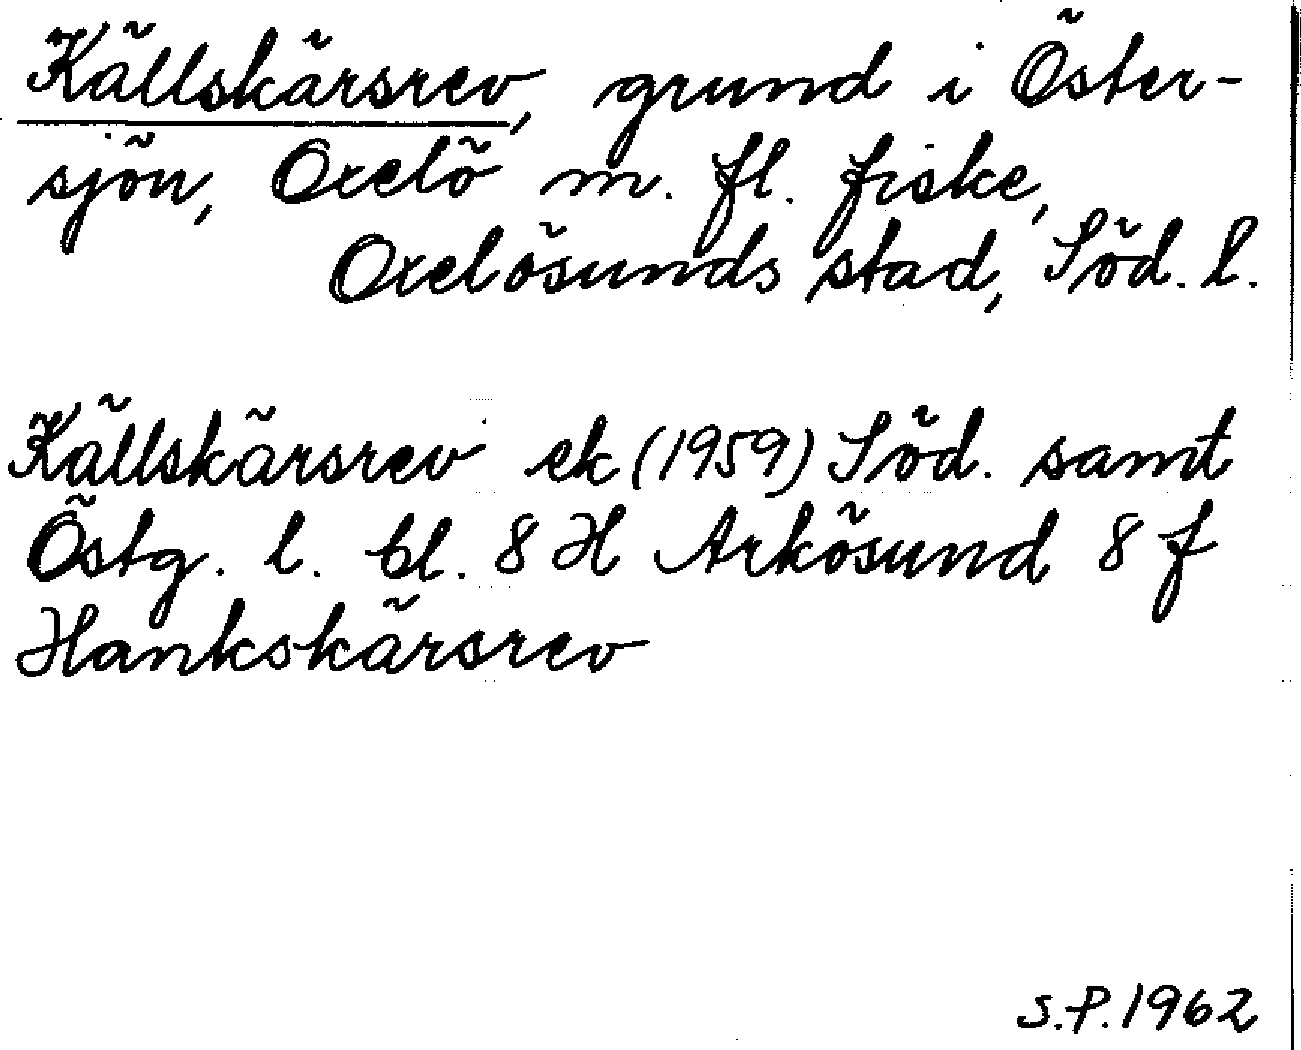 Källskärsrev, grund i Öster-
sjön, Oxelö m. fl. fiske,
Oxelösunds stad, Söd. l.
Källskärsrev ek (1959) Söd. samt
Östg. l. bl. 8 H Arkösund 8 f
Hankskärsrev
S.P. 1962